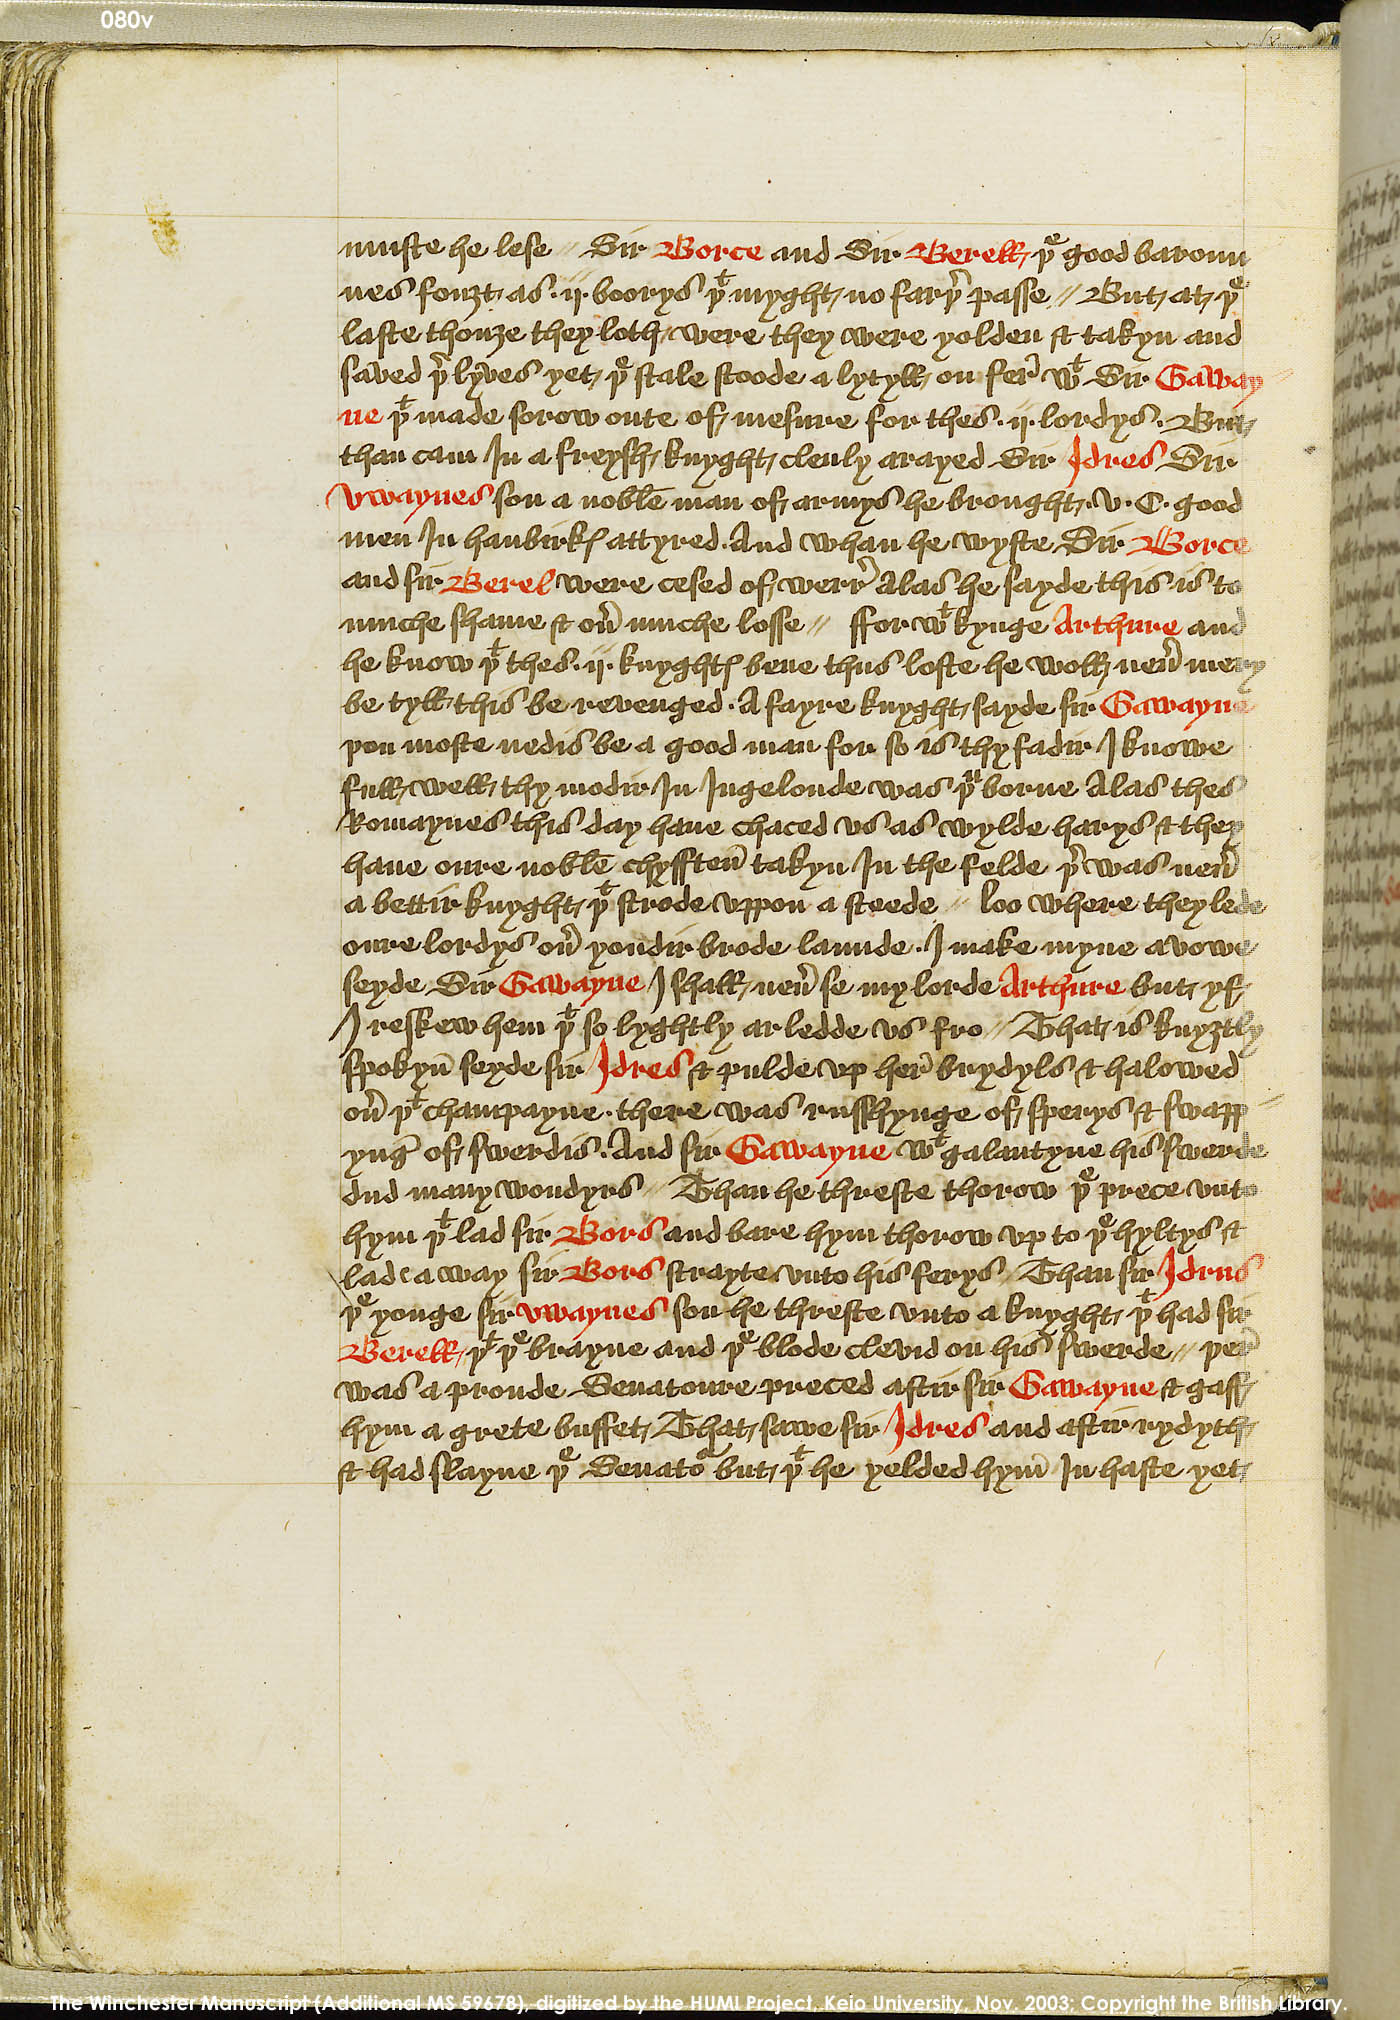 080v
muste he lese // Sir Borce and Sir Berell þᵉ good baroun
nes fouȝt as .ij. boorys þᵗ myght no farþ̄ passe // But at þᵉ
laste thouȝe they loth were they were yolden & takyn and
saved þ̄ lyves yet þᵉ stale stoode a lytyll on fer̄ wᵗ Sir Gaway
ne þᵗ made sorow oute of mesure for thes .ij. lordys. But
than cam In a freysh knyght clenly arayed Sir Idres Sir
Vwaynes son a noble man of armys he brought .v. C. good
men In haubirkꝭ attyred. And whan he wyste Sir Borce
and sir Berel were cesed of werr̄ Alas he sayde this is to
muche shame & ou̅ muche losse // ffor wᵗ kynge Arthure and
he know þᵗ thes .ij. knyghtꝭ bene thus loste he woll neu̅ mery
be tyll this be revenged. A fayre knyght sayde sir Gawayne
þou moste nedis be a good man for so is thy fadir I knowe
full well thy modir In Ingelonde was þᵘ borne Alas thes
Romaynes this day haue chaced vs as wylde harys & they
haue oure noble chyfften̄ takyn In the felde þ̄ was neu̅
a bettir knyght þᵗ strode vppon a steede // loo where they lede
oure lordys ou̅ yondir brode launde. I make myne avowe
seyde Sir Gawayne I shall neu̅ se my lorde Arthure but yf
I reskew hem þᵗ so lyghtly ar ledde vs fro // That is knyȝtly
spokyn̄ seyde sir Idres & pulde vp her̄ brydyls & halowed
ou̅ þᵗ champayne. there was russhynge of sperys & swapp
ynḡ of swerdis. And sir Gawayne wᵗ galantyne his swerde
dud many wondyrs // Than he threste thorow þᵉ prece vnto
hym þᵗ lad sir Bors and bare hym thorow vp to þᵉ hyltys &
lade away sir Bors strayte vnto his ferys // Than sir Idrus
þᵉ yonge sir vwaynes son he threste vnto a knyght þᵗ had sir
Berell þᵗ þᵉ brayne and þᵉ blode clevid on his swerde // þer̄
was a proude Senatoure preced aftir sir Gawayne & gaff
hym a grete buffet That sawe sir Idres and aftir rydyth
& had slayne þᵉ Senatoʳ but þᵗ he yelded hym̄ In haste yet
The Winchester Manuscript (Additional MS 59678), digitized by the HUMI Project, Keio University, Nov. 2003; Copyright the British Library.